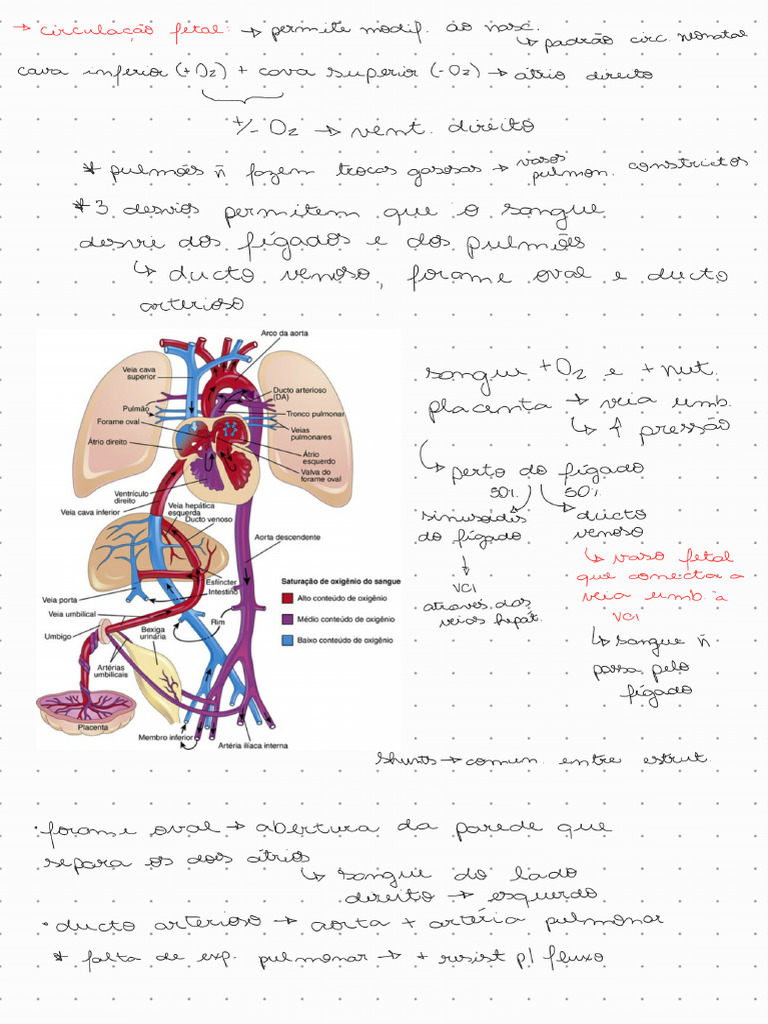 → circulação fetal: → permite modif. ao nasc.
↳ padrão circ. neonatal
cava inferior (+O2) + cava superior (-O2) → átrio direito
+/- O2 → vent. direito
* pulmões ñ fazem trocas gasosas → vasos pulmon. constrictos
* 3 desvios permitem que o sangue
desvie dos fígados e dos pulmões
↳ ducto venoso, forame oval e ducto
arterioso
Arco da aorta
Veia cava
superior
Ducto arterioso
(DA)
Pulmão
Tronco pulmonar
Forame oval
Veias
pulmonares
Átrio direito
Átrio
esquerdo
Valva do
forame oval
Ventrículo
direito
Veia hepática
esquerda
Veia cava inferior
Ducto venoso
Aorta descendente
Esfíncter
Intestino
Veia porta
Veia umbilical
Rim
Umbigo
Bexiga
urinária
Artérias
umbilicais
Placenta
Membro inferior
Artéria ilíaca interna
Saturação de oxigênio do sangue
Alto conteúdo de oxigênio
Médio conteúdo de oxigênio
Baixo conteúdo de oxigênio
sangue +O2 e + nut.
placenta → veia umb.
↳ ↑ pressão
↳ perto do fígado
50% 50%
sinusoides
do fígado
↓
VCI
através das
veias hepát.
ducto
venoso
↳ vaso fetal
que conecta a
veia umb. à
VCI
↳ sangue ñ
passa pelo
fígado
shunts → comun. entre estrut.
• forame oval → abertura da parede que
separa os dois átrios
↳ sangue do lado
direito → esquerdo
• ducto arterioso → aorta + artéria pulmonar
* falta de exp. pulmonar → + resist p/ fluxo